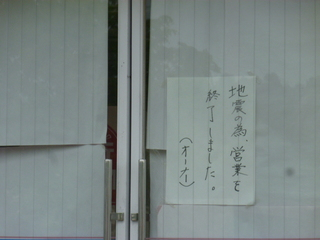 地震の為、営業を
終了しました。
(オーナー)